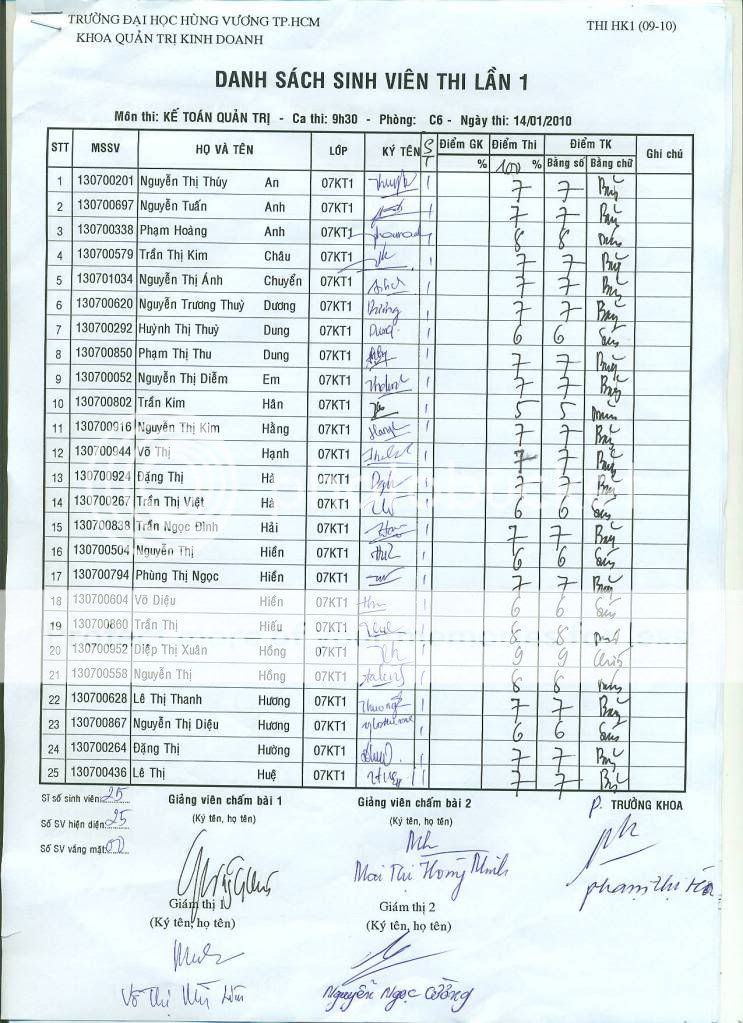 TRƯỜNG ĐẠI HỌC HÙNG VƯƠNG TP.HCM THI HK1 (09-10)
KHOA QUẢN TRỊ KINH DOANH
DANH SÁCH SINH VIÊN THI LẦN 1
Môn thi: KẾ TOÁN QUẢN TRỊ - Ca thi: 9h30 - Phòng: C6 - Ngày thi: 14/01/2010
STT MSSV HỌ VÀ TÊN LỚP KÝ TÊN ST Điểm GK Điểm Thi Điểm TK Ghi chú
% 100 % Bằng số Bằng chữ
1 130700201 Nguyễn Thị Thúy An 07KT1 1 7 7 Bảy
2 130700697 Nguyễn Tuấn Anh 07KT1 1 7 7 Bảy
3 130700338 Phạm Hoàng Anh 07KT1 1 8 8 tám
4 130700579 Trần Thị Kim Châu 07KT1 1 7 7 Bảy
5 130701034 Nguyễn Thị Ánh Chuyển 07KT1 1 7 7 Bảy
6 130700620 Nguyễn Trương Thuỳ Dương 07KT1 Dương 1 7 7 Bảy
7 130700292 Huỳnh Thị Thuỳ Dung 07KT1 Dung 1 6 6 Sáu
8 130700850 Phạm Thị Thu Dung 07KT1 1 7 7 Bảy
9 130700052 Nguyễn Thị Diễm Em 07KT1 1 7 7 Bảy
10 130700802 Trần Kim Hân 07KT1 1 5 5 năm
11 130700916 Nguyễn Thị Kim Hằng 07KT1 1 7 7 Bảy
12 130700944 Võ Thị Hạnh 07KT1 1 7 7 Bảy
13 130700924 Đặng Thị Hà 07KT1 1 7 7 Bảy
14 130700267 Trần Thị Việt Hà 07KT1 1 6 6 Sáu
15 130700838 Trần Ngọc Đình Hải 07KT1 1 7 7 Bảy
16 130700504 Nguyễn Thị Hiền 07KT1 1 6 6 Sáu
17 130700794 Phùng Thị Ngọc Hiền 07KT1 1 7 7 Bảy
18 130700604 Võ Diệu Hiền 07KT1 1 6 6 Sáu
19 130700860 Trần Thị Hiếu 07KT1 1 8 8 tám
20 130700952 Diệp Thị Xuân Hồng 07KT1 1 9 9 chín
21 130700558 Nguyễn Thị Hồng 07KT1 1 8 8 tám
22 130700628 Lê Thị Thanh Hương 07KT1 1 7 7 Bảy
23 130700867 Nguyễn Thị Diệu Hương 07KT1 1 6 6 Sáu
24 130700264 Đặng Thị Hường 07KT1 1 7 7 Bảy
25 130700436 Lê Thị Huệ 07KT1 1 7 7 Bảy
Sĩ số sinh viên: 25 Giảng viên chấm bài 1 Giảng viên chấm bài 2 P. TRƯỞNG KHOA
Số SV hiện diện: 25 (Ký tên, họ tên) (Ký tên, họ tên)
Số SV vắng mặt: 00
Mai Thị Hồng Minh
Phạm Thị
Giám thị 1 Giám thị 2
(Ký tên, họ tên) (Ký tên, họ tên)
Võ Thị Nguyễn Ngọc Cường